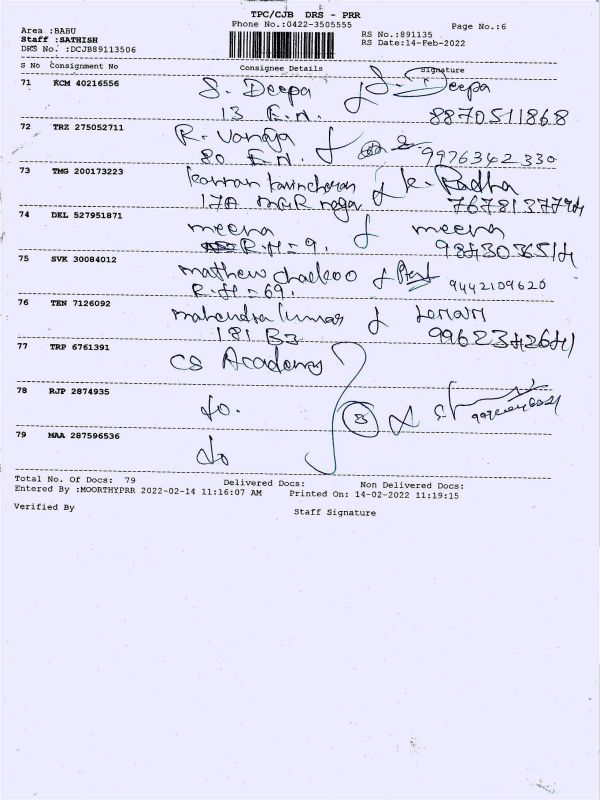 TPC/CJB DRS - PRR
Phone No.:0422-3505555
Page No.:6
Area :BABU
Staff :SATHISH
DRS No. :DCJB89113506
RS No.:891135
RS Date:14-Feb-2022
S No Consignment No Consignee Details Signature
71 KCM 40216556 S. Deepa S. Deepa
13 E.N. 8870511868
72 TRZ 275052711 R. Vanaja
80 E.N. 9976342330
73 TMG 200173223 k. Radha
17A MGR nagar
74 DEL 527951871 meena meena
R.H = 9. 9843036514
75 SVK 30084012 mathew chackoo 9442109620
R.H = 69.
76 TEN 7126092 mahendra kumar
181 B3 9962342641
77 TRP 6761391 CS Academy
78 RJP 2874935 do. 3
79 MAA 287596536 do
Total No. Of Docs: 79 Delivered Docs: Non Delivered Docs:
Entered By :MOORTHYPRR 2022-02-14 11:16:07 AM Printed On: 14-02-2022 11:19:15
Verified By Staff Signature